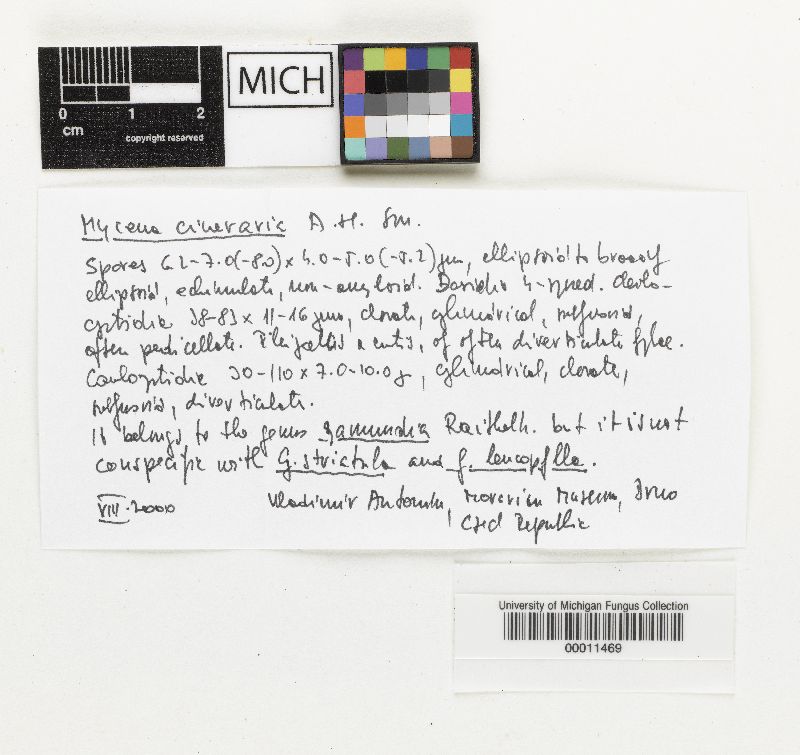 0 1 2
cm
copyright reserved
MICH
Mycena cineraria A.H. Sm.
Spores 6.2-7.0(-8.0) × 4.0-5.0(-5.2) μm, ellipsoid to broadly
ellipsoid, echinulate, non-amyloid. Basidia 4-spored. Cheilo-
cystidia 38-83 × 11-16 μm, clavate, cylindrical, subfusoid,
often pedicellate. Pileipellis a cutis, of often diverticulate hyphae.
Caulocystidia 30-110 × 7.0-10.0 μ, cylindrical, clavate,
subfusoid, diverticulate.
It belongs to the genus Gamundia Raithelh. but it is not
conspecific with G. striatula and G. leucophylla.
VIII. 2000 Vladimír Antonín, Moravian Museum, Brno
Czech Republic
University of Michigan Fungus Collection
00011469